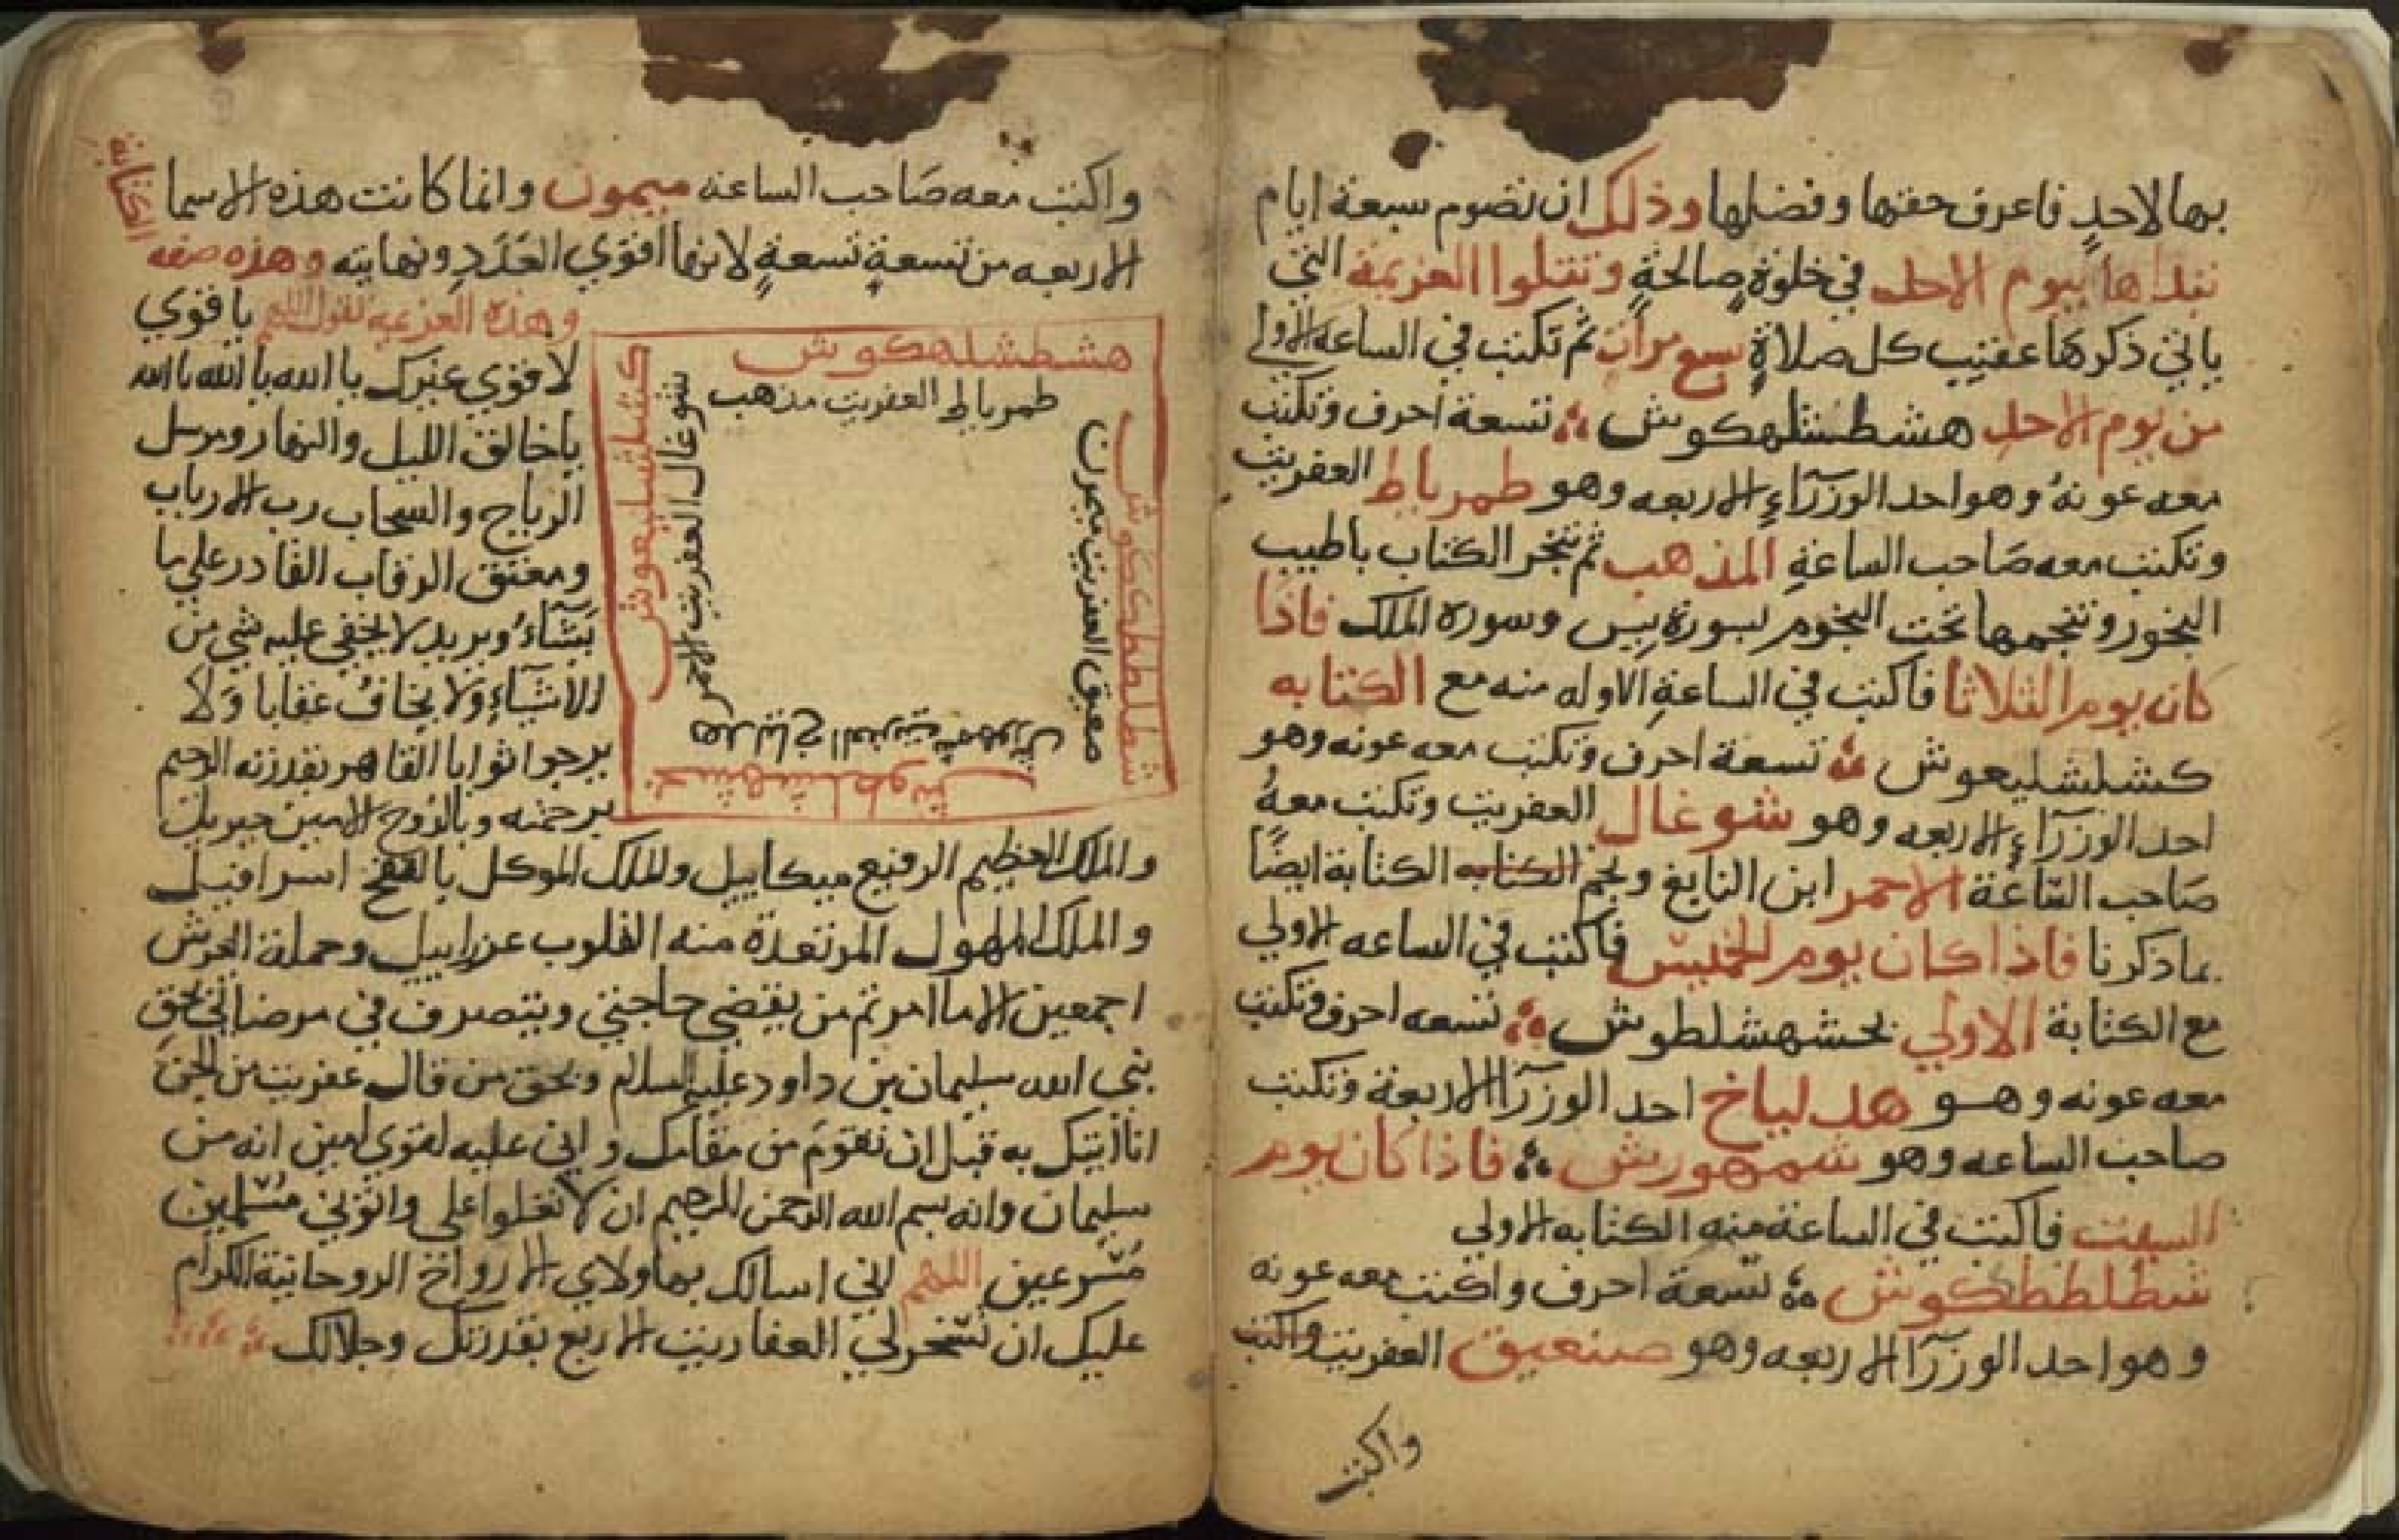 بها لاحدٍ فاعرف حقها وفضلها وذلك ان تصوم سبعة ايام
تبداها بيوم الاحد في خلوةٍ صالحةٍ وتتلوا العزيمة التي
ياتي ذكرها عقيب كل صلاةٍ سبع مرات ثم تكتب في الساعه الاولي
من يوم الاحد هشطشلهكوش تسعة احرف وتكتب
معه عونهُ وهو احد الوزرآءِ الاربعه وهو طمرياط العفريت
وتكتب معه صاحب الساعةِ المذهب ثم تبخر الكتاب باطيب
البخور وتنجمها تحت النجوم بسورة يس وسورة الملك فاذا
كان يوم الثلاثا فاكتب في الساعةِ الاوله منه مع الكتابه
كشلشليعوش تسعة احرف وتكتب معه عونه وهو
احد الوزرآءِ الاربعه وهو شوغال العفريت وتكتب معهُ
صاحب السّاعة الاحمر ابن النايغ ونجم الكتابه الكتابة ايضًا
بما ذكرنا فاذا كان يوم الخميس فاكتب في الساعه الاولي
مع الكتابة الاولي بخشهشلطوش تسعه احرف وتكتب
معه عونه وهو هدلياخ احد الوزرآ الاربعة وتكتب
صاحب الساعه وهو شمهورش فاذا كان يوم
السبت فاكتب في الساعة منه الكتابه الاولي
شطلطططكوش تسعة احرف واكتب معه عونه
وهو احد الوزرآ الاربعه وهو صنعيق العفريت واكتب
واكتب
واكتب معه صاحب الساعه ميمون وانما كانت هذه الاسما
الاربعه من تسعةٍ تسعةٍ لانها اقوي العَدَدِ ونهايته وهذه صفه
الكتابة
وهذه العزيمه تقول اللهم يا قوي
لا قوي غيرك يا الله يا الله يا الله
يا خالق الليل والنهار ومرسل
الرياح والسحاب رب الارباب
ومعتق الرقاب القادر علي ما
يَشَآءُ ويريد لا يخفي عليه شي من
الاشيَآءِ ولا يخاف عقابا ولا
يرجوا ثوابا القاهر بقدرته الرحيم
برحمته وبالرّوح الامين جبريل
هشطشلهكوش
طمرياط العفريت مذهب
شطلطططكوش
صعيق العفريت ميمون
بخشهشلطوش
هدلياخ العفريت شمهورش
كشلشليعوش
شوغال العفريت الاحمر
والملك العظيم الرفيع ميكاييل والملك الموكل بالنفخ اسرافيل
والملك المهول المرتعدة منه القلوب عزراييل وحملة العرش
اجمعين الا ما امرتم من يقضي حاجتي ويتصرف في مرضاتي بحق
نبي الله سليمان بن داود عليه السلام وبحق من قال عفريت من الجن
انا اتيك به قبل ان تقومَ من مقامك واني عليه لقوي امين انه من
سليمان وانه بسم الله الرحمن الرحيم ان لا تعلوا علي واتوني مسلمين
مُسرعين اللهم اني اسالك يا مولاي الارواح الروحانية الكرام
عليك ان تسخر لي العفاريت الاربع بقدرتك وجلالك